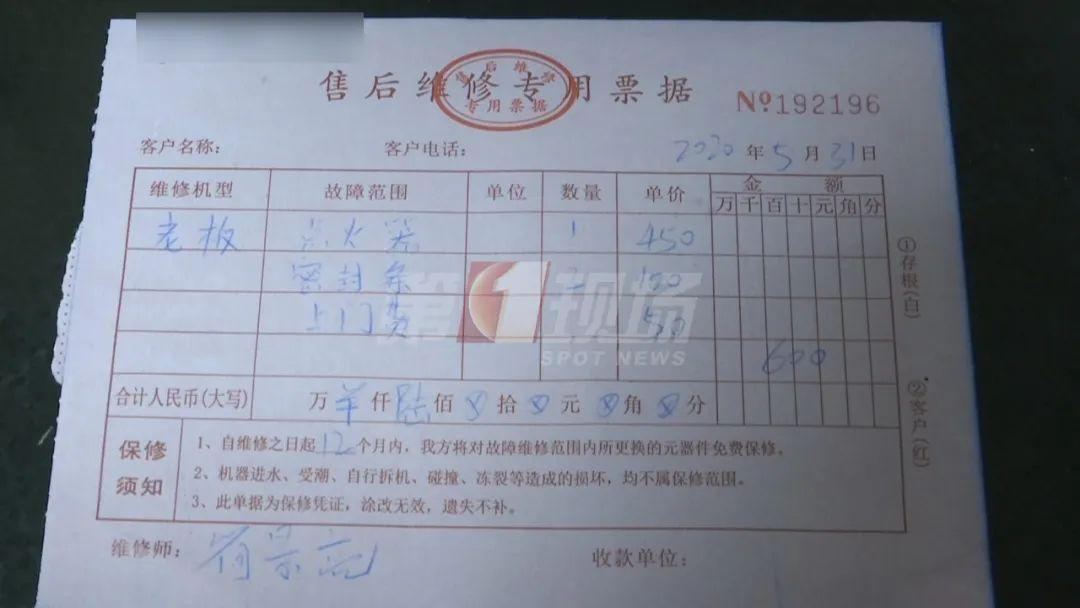 售后维修专用票据
售后维修
专用票据
No192196
客户名称： 客户电话： 2020年5月31日
维修机型 故障范围 单位 数量 单价 金额
万千百十元角分
老板 点火器 1 450
密封条 100
上门费 50
第1现场
SPOT NEWS
600
合计人民币(大写) 万 仟陆佰 拾 元 角 分
①存根(白)
②客户(红)
保修须知
1、自维修之日起12个月内，我方将对故障维修范围内所更换的元器件免费保修。
2、机器进水、受潮、自行拆机、碰撞、冻裂等造成的损坏，均不属保修范围。
3、此单据为保修凭证，涂改无效，遗失不补。
维修师： 收款单位：